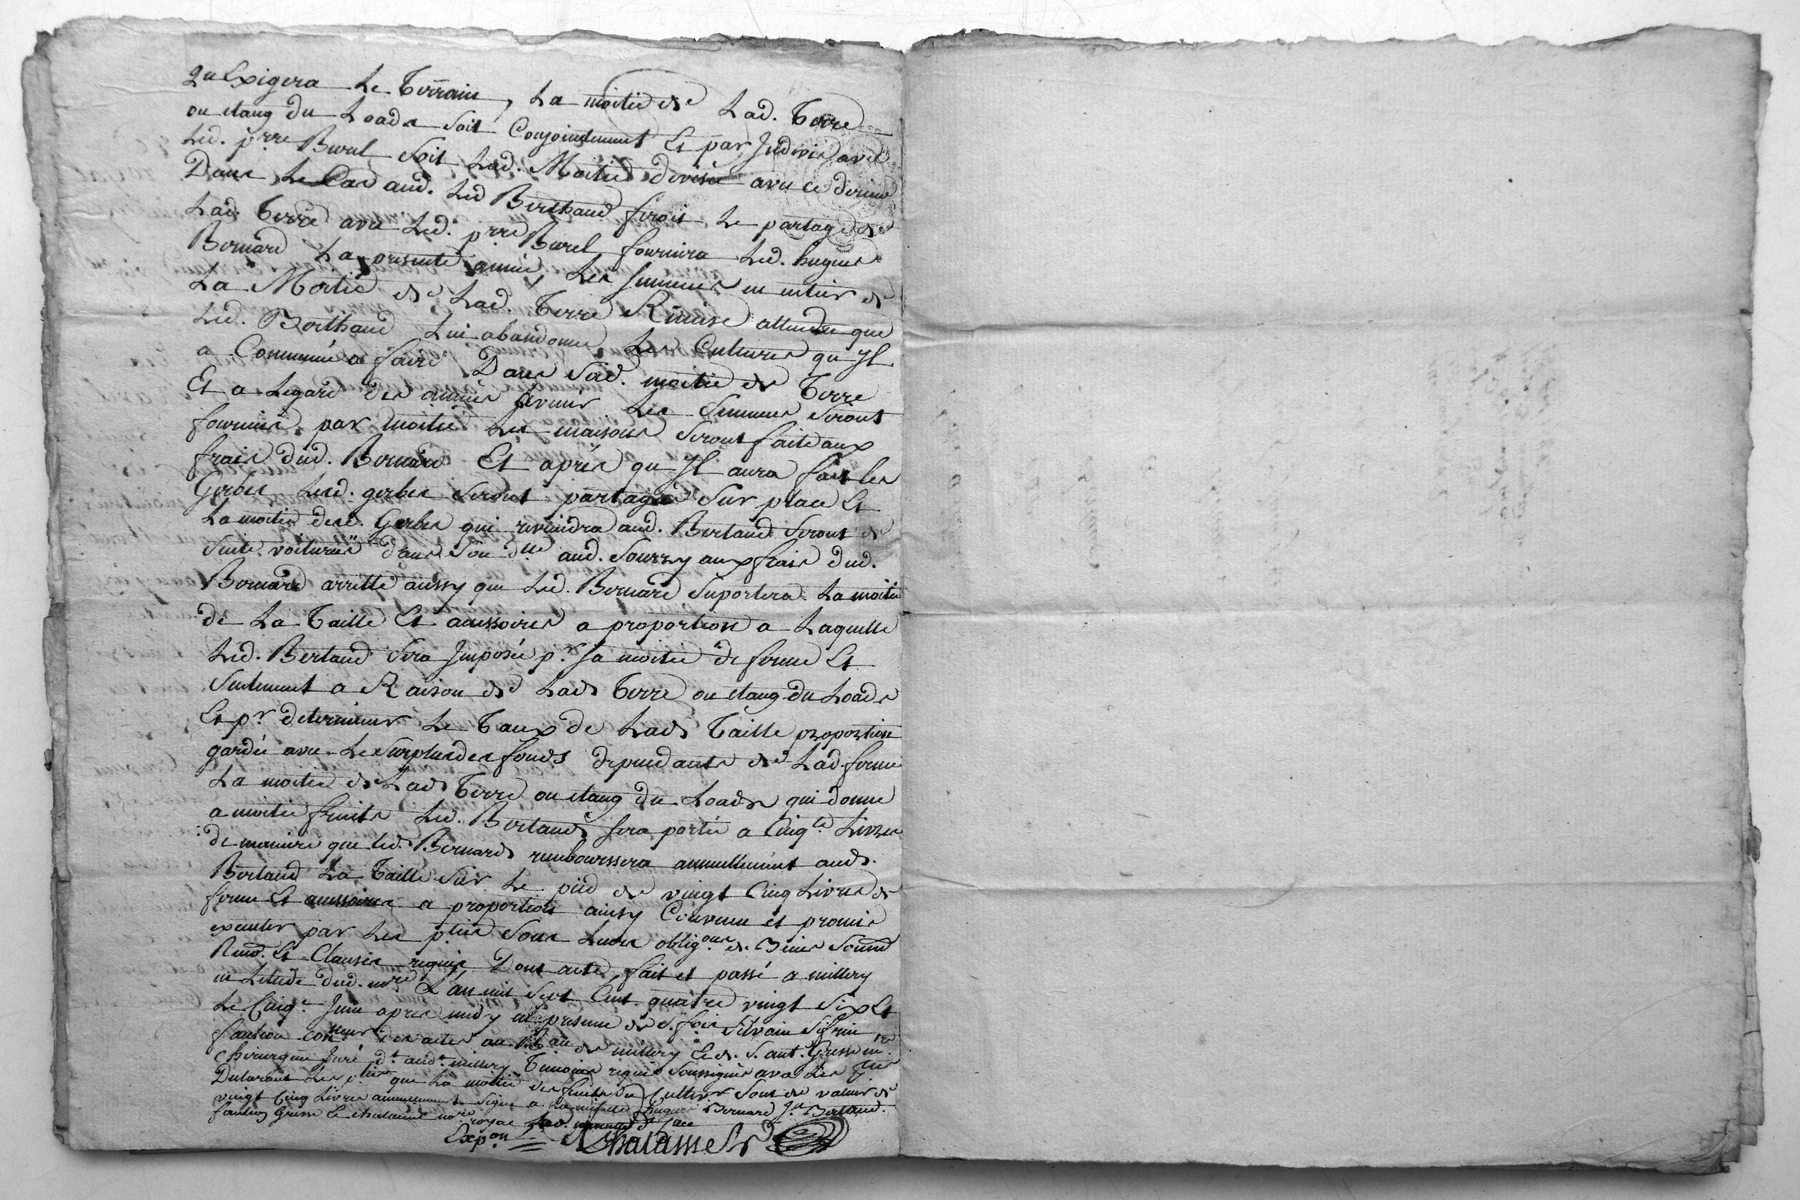 qu Exigera Le Terrain, La moitié de Lad. Terre
ou etang du Loada soit Conjointement Et par Indivis avec
Led. prre Burel soit Lad. Moitié divisée avec ce dernier
Dans Le Cas aud. Led Berthaud feroit Le partage de
Lad. Terre avec Led. prre Burel fournira Led. hugues
Bernard La presente année Les Semences en entier de
La Moitié de Lad. Terre Riveuse attendu que
Led. Berthaud Lui abandonne Les Cultures qu Jl
a Commencé a faire Dans Sad. moitié de Terre
Et a Legard des années avenir Les Semences Seront
fournies par moitié Les moissons Seront faite aux
frais dud. Bernard Et après qu Jl aura fait les
Gerbes Lesd. gerbes Seront partagés Sur place Et
La moitié desd. Gerbes qui reviendra aud. Bertaud Seront de
Suite voiturées dans Son dlle aud. Sourzy aux frais dud.
Bernard arretté aussy que Led. Bernard Suportera La moitié
de La Taille Et accessoires a proportion a Laquelle
Led. Bertaud Sera Jmposée pr Sa moitié de ferme Et
Seulement a Raison de Lad. Terre ou etang du Loada
Et pr determiner Le Taux de Lad. Taille proportion
gardée avec Le Surplus des fonds dependants de Lad. ferme
La moitié de Lad. Terre ou etang du Loada qui donne
a moitié fruits Led. Bertaud Sera portée a Cinqte Livres
de maniere que led. Bernard rembourssera annuellement aud.
Bertaud La Taille Sur Le pied de vingt Cinq Livres de
ferme Et accessoires a proportion ainsy Convenu et promis
executer par Les pties Sous Leurs obligons de Biens Soumd
Renod. Et Clauses requise Dont acte fait et passé a millery
en Létude dud. nore L'an mil Sept Cent quatre vingt Six Et
Le Cinqe Juin apres midy en presence de S. fois Silvain Sifrin
faution Conteur des actes au Bau de millery Et de S. ant. Gresse me
Chirurgien Juré dt aud. millery Temoins requis Soussignés avec Les pties
Declarant Les pties que La moitié des fruits du Cultiver Sont de valeur de
vingt Cinq Livres annuellement Signé a La minutte hugues Bernard Jn Bertaud.
faution Gresse Et Chalamel nore royal
Expon Chalamel